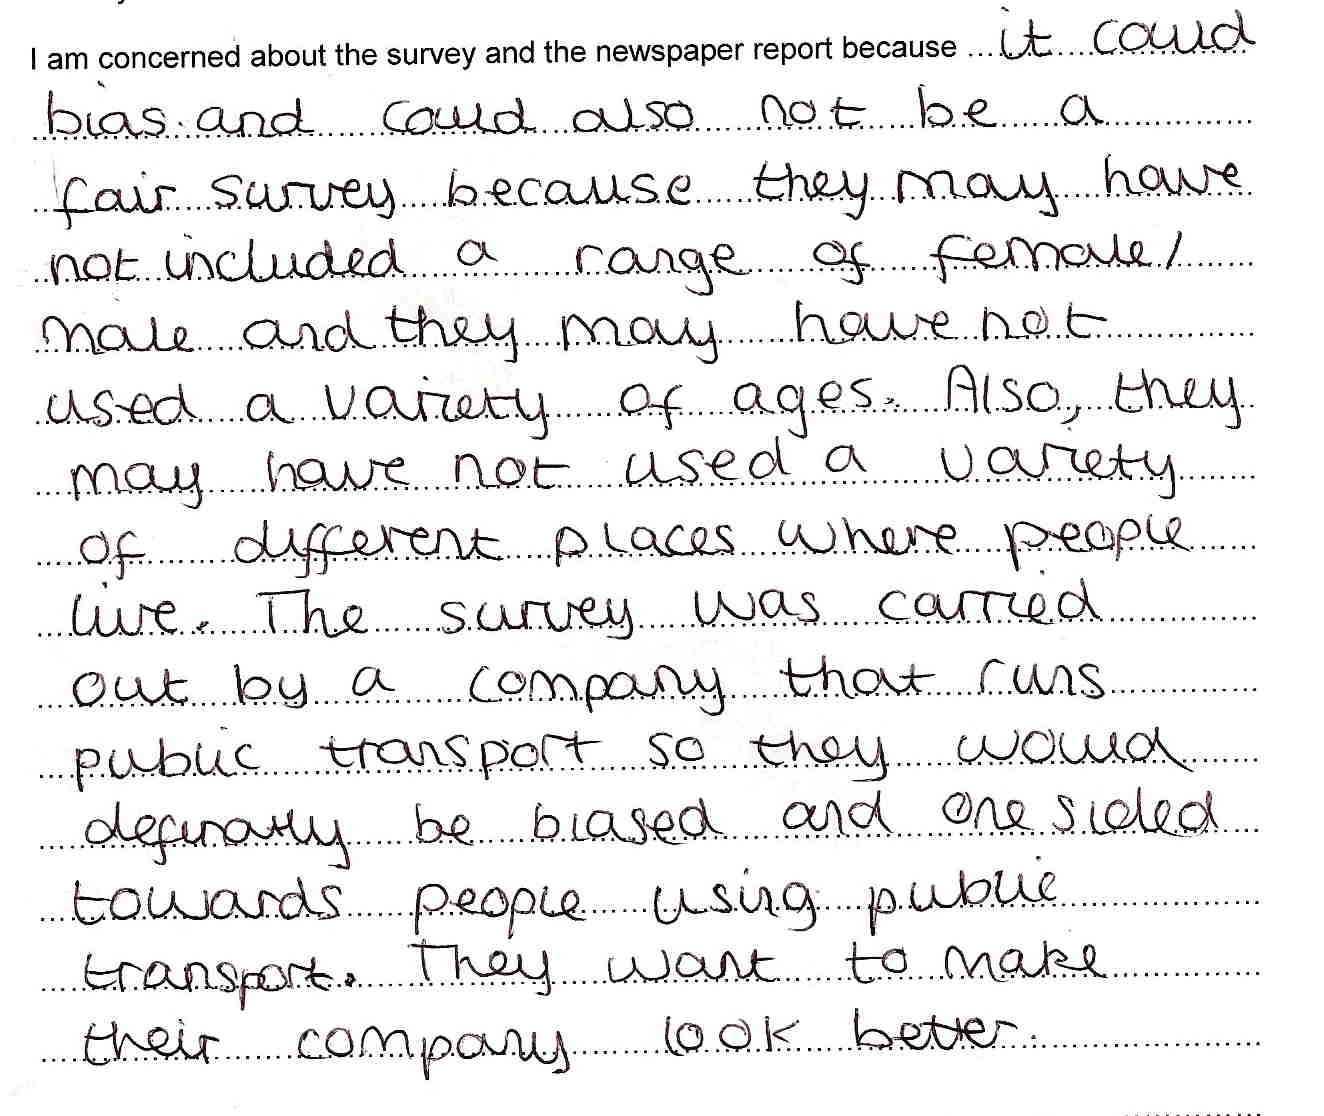 I am concerned about the survey and the newspaper report because it could
bias and could also not be a
fair survey because they may have
not included a range of female/
male and they may have not
used a variety of ages. Also, they
may have not used a variety
of different places where people
live. The survey was carried
out by a company that runs
public transport so they would
definatly be biased and one sided
towards people using public
transport. They want to make
their company look better.